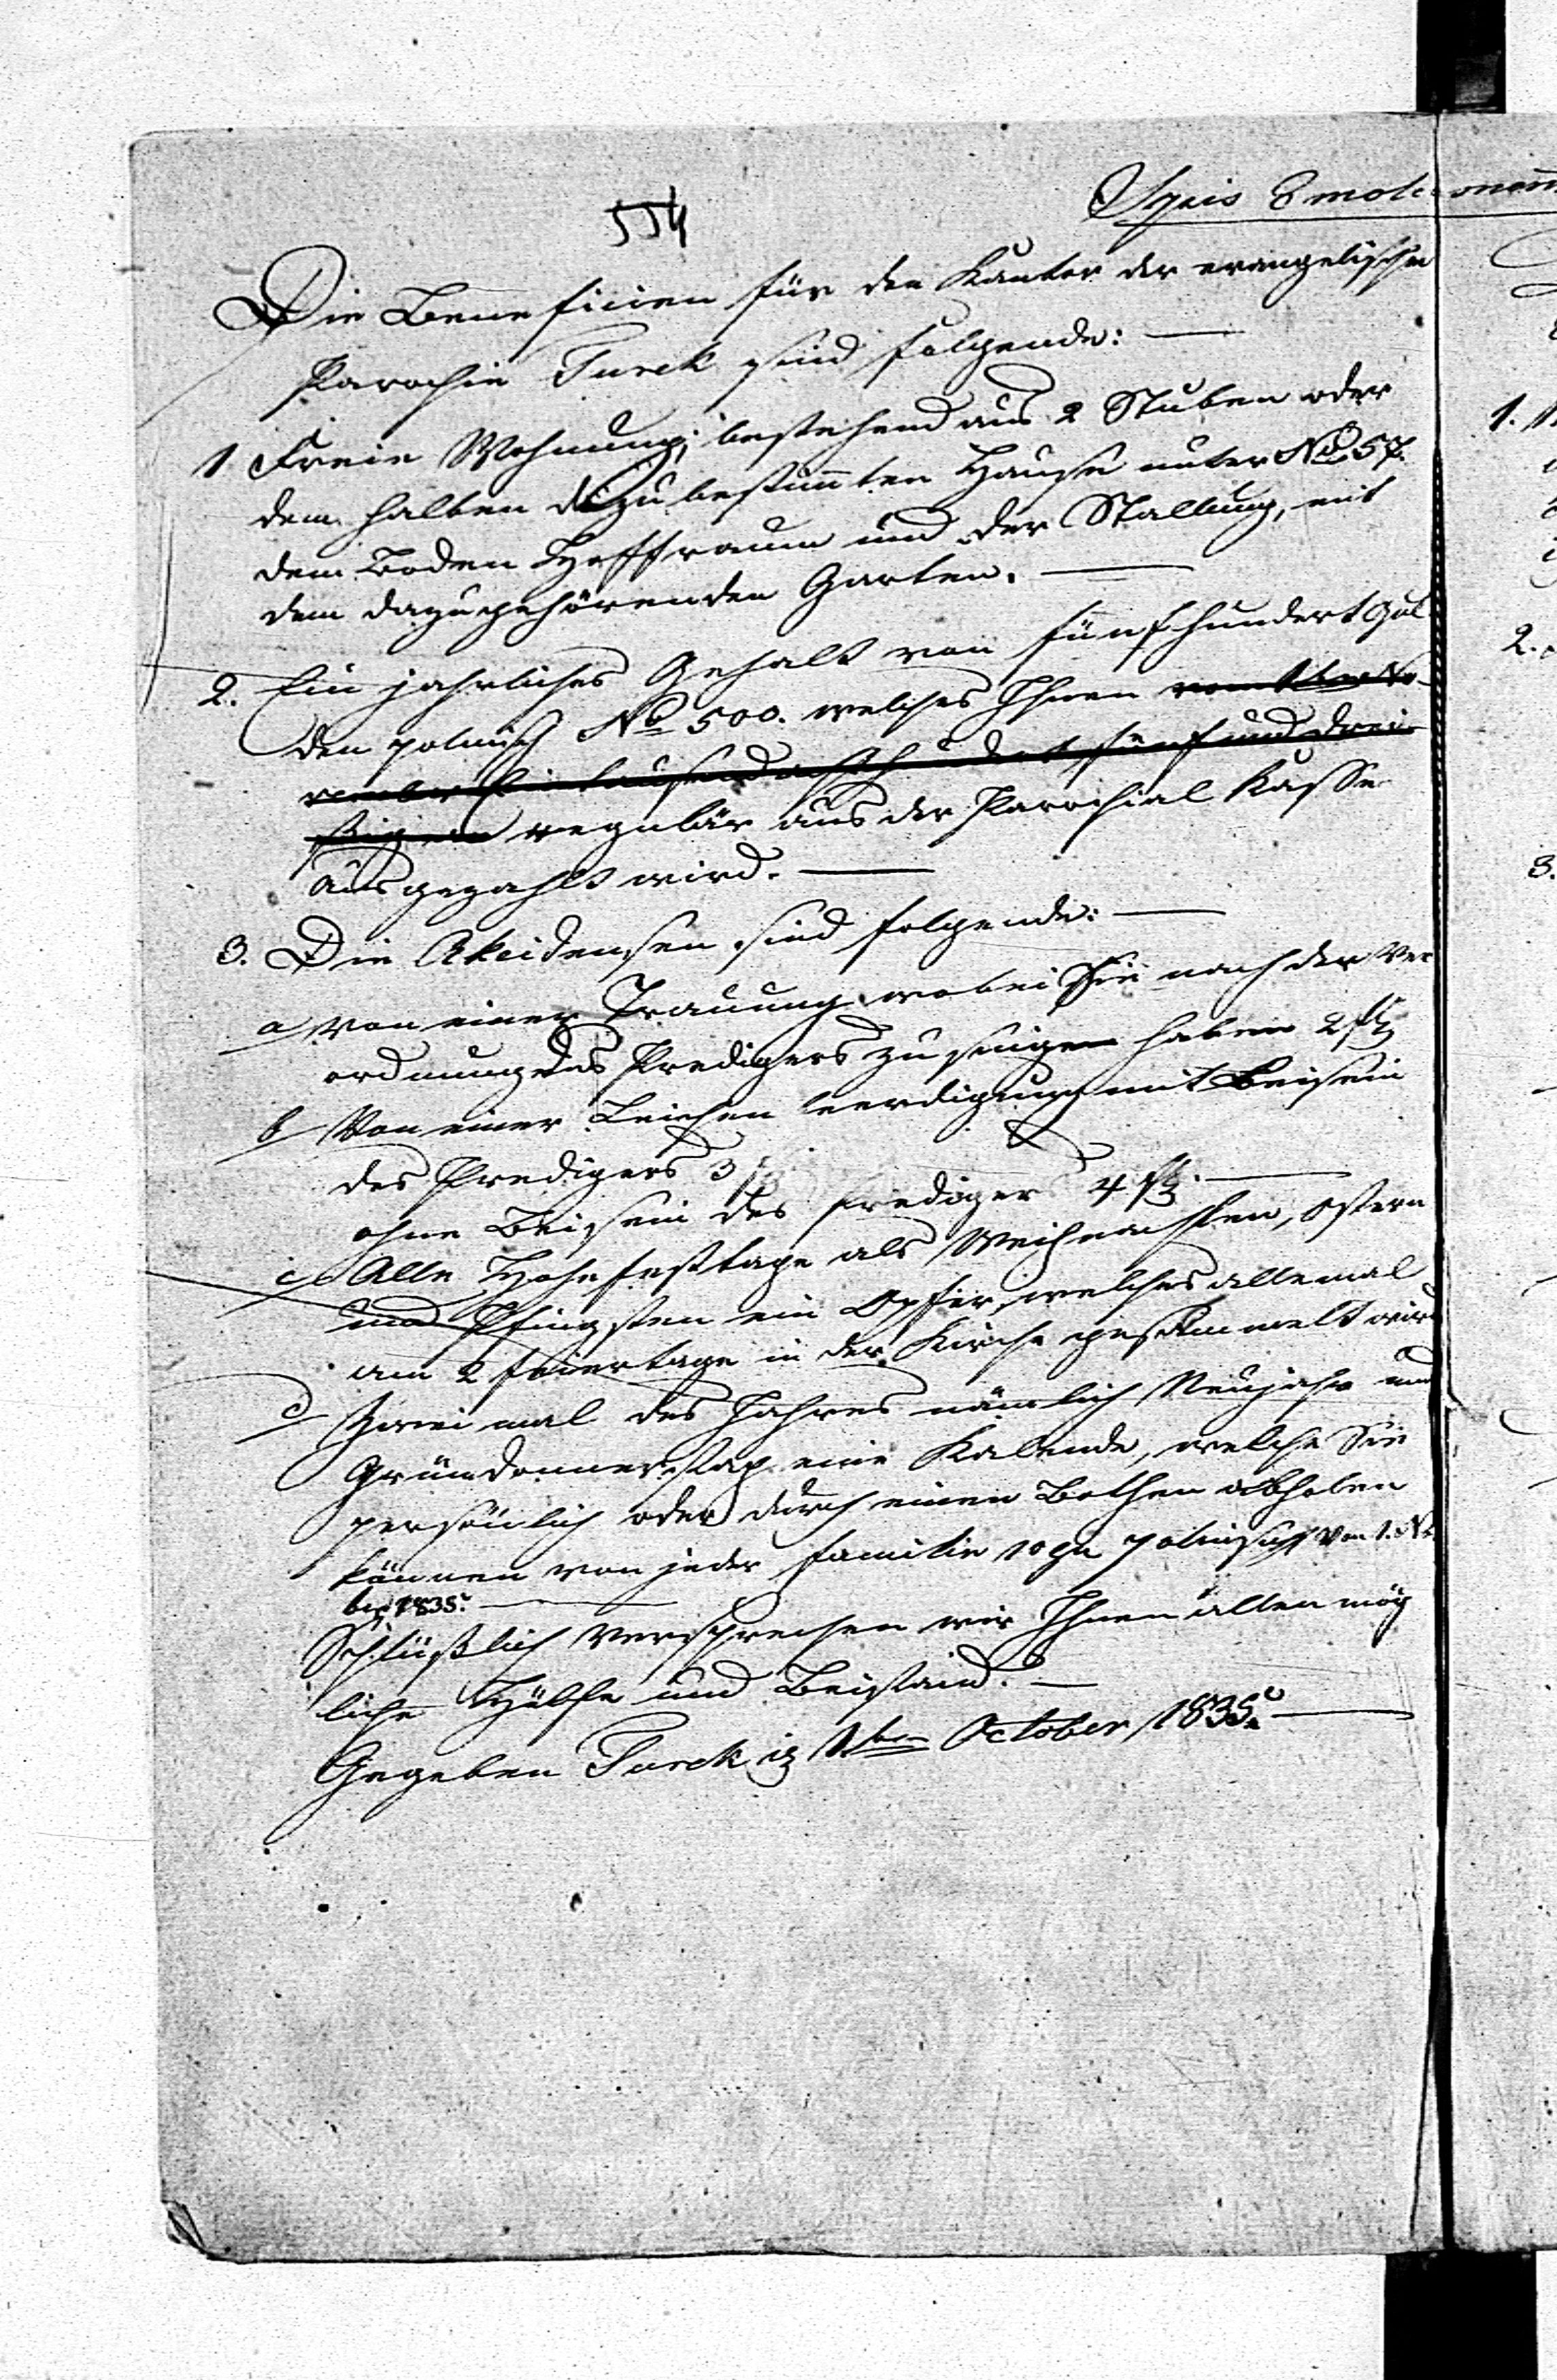 554
Spis Emolu
Die Beneficien für den Kantor der evangelischen
Parochie Turek sind folgende: —
1 Freie Wohnung, bestehend aus 2 Stuben oder
dem halben dazu bestimmten Hause unter No 57.
dem Boden Hoffraum und der Stallung, mit
dem dazugehörenden Garten. —
2. Ein jahrliches Gehalt von fünfhundert Gul
den polnisch No 500. welches Ihnen vom 1ten No
vember Eintausendachthundertfünfunddrei
ßig regulär aus der Parochial Kasse
ausgezahlt wird. —
3. Die Akcidensen sind folgende: —
a, von einer Trauung wobei Sie nach der Ver
ordnung des Predigers zu singen haben 2 fl
b, Von einer Leichen beerdigung mit Beisein
des Predigers 3 fl
ohne Beisein des Prediger 4 fl. —
c, Alle Hohe festtage als Weihnachten, Ostern
und Pfingsten ein Opfer, welches allemal
am 2 feiertage in der Kirche gesammelt wird
d, Zwei mal des Jahres nämlich Neujahr und
Gründonnerstag eine Kalende, welche Sie
persönlich oder durch einen Bothen abholen
können von jeder familie 10 gr polnisch vom 1. No
ber 1835. —
Schlüßlich versprechen wir Ihnen allen mög
liche Hülfe und Beistand. —
Gegeben Turek 1ten October 1835. —
1.
2.
3.